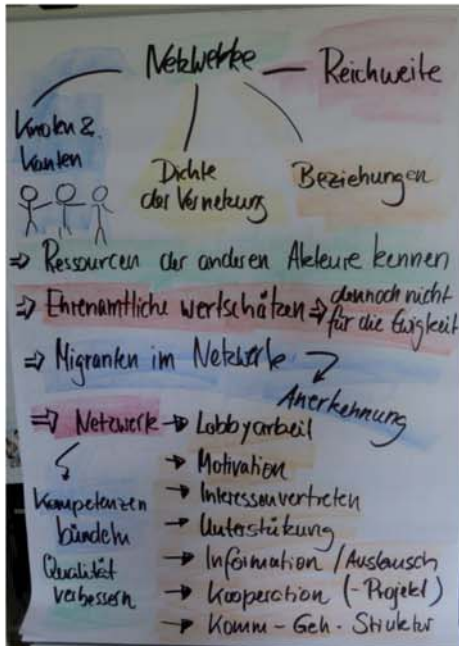 Netzwerke — Reichweite
Knoten &
Kanten
Dichte
der Vernetzung
Beziehungen
⇒ Ressourcen der anderen Akteure kennen
⇒ Ehrenamtliche wertschätzen ⇒ dennoch nicht
für die Ewigkeit
⇒ Migranten im Netzwerk
Anerkennung
⇒ Netzwerk → Lobbyarbeit
→ Motivation
→ Interessenvertreten
→ Unterstützung
→ Information / Austausch
→ Kooperation (-Projekt)
→ Komm - Geh - Struktur
Kompetenzen
bündeln
Qualität
verbessern